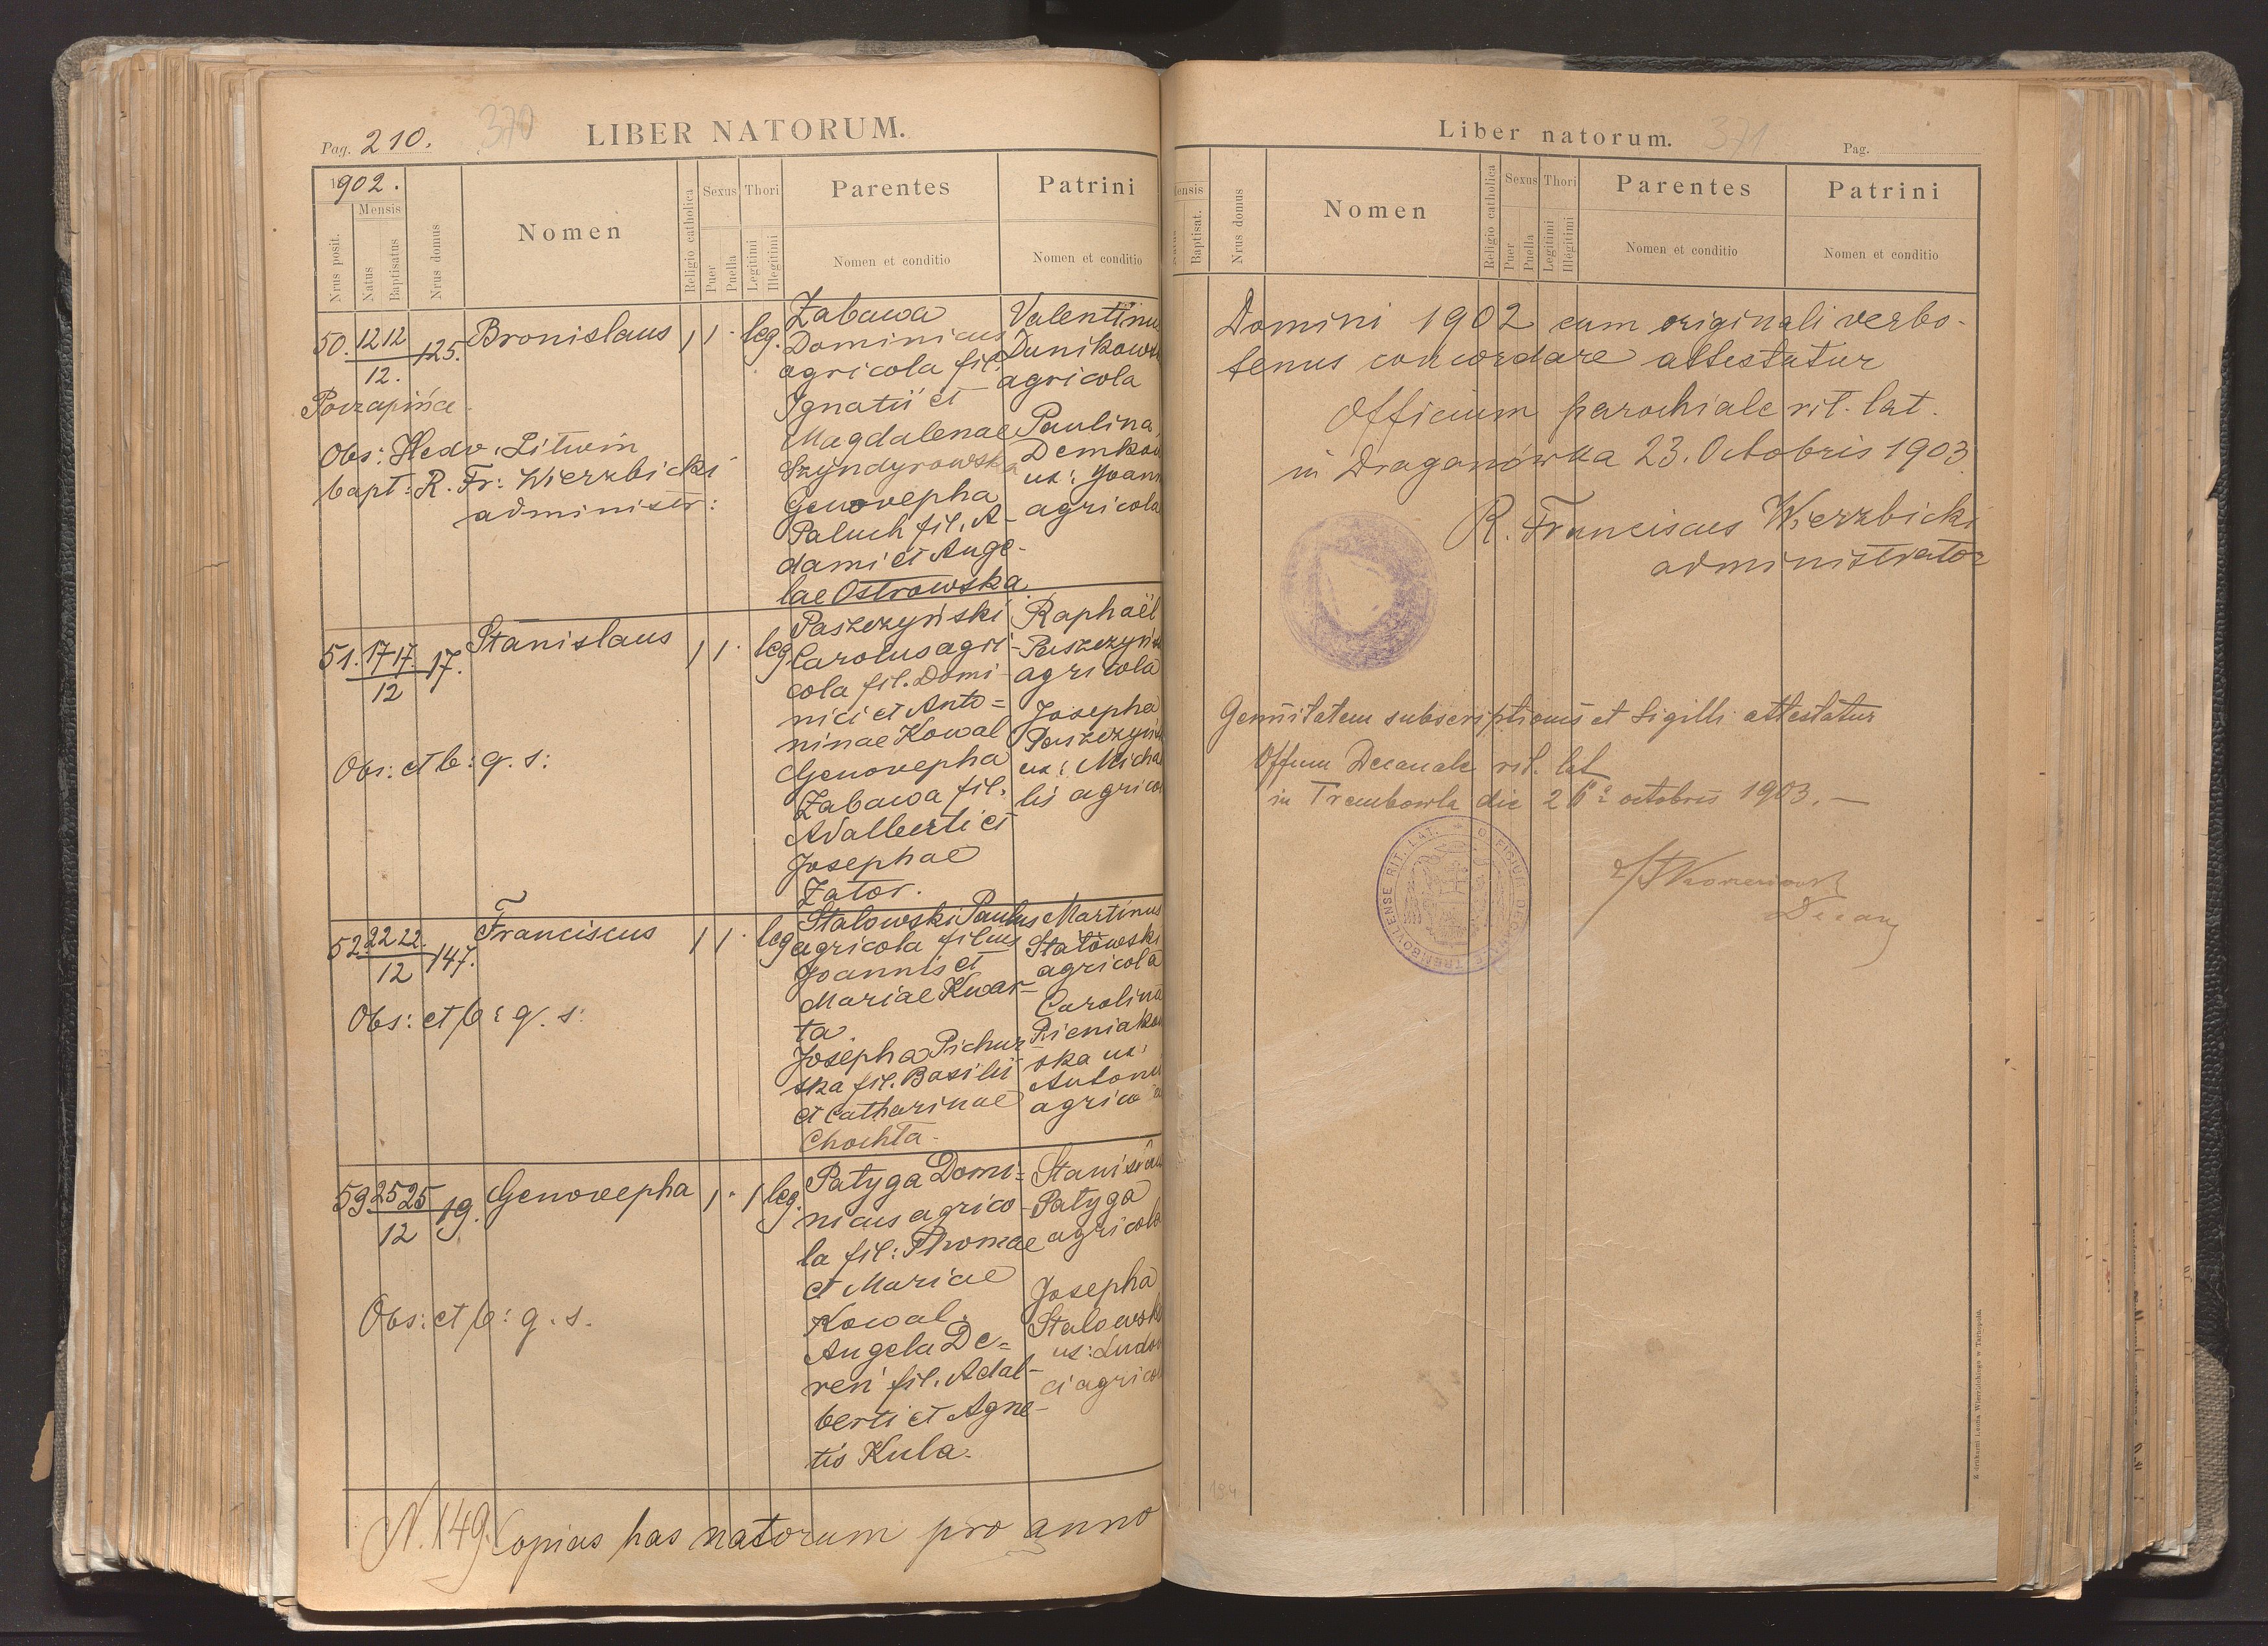 Pag. 210.
370
LIBER NATORUM.
1902.
Mensis
Nrus posit.
Natus
Baptisatus
Nrus domus
Nomen
Religio catholica
Sexus
Puer
Puella
Thori
Legitimi
Illegitimi
Parentes
Nomen et conditio
Patrini
Nomen et conditio
50. 12 12 125. Bronislaus 1 1 · leg.
12.
Obs: Hedv. Litwin
bapt: R. Fr: Wierzbicki
administr:
Zabawa
Dominicus
agricola fil.
Ignatii et
Magdalenae
Szyndyrowska
Genovepha
Paluch fil. A-
dami et Ange-
lae Ostrowska
Valentinu
Dunikowsk
agricola
Paulina
Demkow
ux: Joann
agricola
51. 17 17. 17. Stanislaus 1 1 · leg
12
Obs: et b: q. s:
Paszczyński
Carolus agri-
cola fil. Domi-
nici et Anto=
ninae Kowal
Genovepha
Zabawa fil.
Adalberti et
Josephae
Zator.
Raphaël
Paszczyńsk
agricola
Josepha
Paszczyńsk
ux: Micha
lis agrico
52. 22 22. 147. Franciscus 1 1 · leg
12
Obs: et b: q. s:
Stalowski Paulus
agricola filius
Joannis et
Mariae Kwar-
ta.
Josepha Pichur-
ska fil. Basilii
et Catharinae
Chochta-
Martinus
Stalowski
agricola
Carolina
Pieniakow
ska ux:
Antonii
agrico
53. 25 25 19. Genovepha 1 · 1 leg.
12
Obs: et b: q. s.
Patyga Domi=
nicus agrico-
la fil: Thomae
et Mariae
Kowal.
Angela De=
reń fil. Adal-
berti et Agne-
tis Kula.
Stanislau
Patyga
agricola
Josepha
Stalowsk
ux: Ludov
ci agrico
N. 149. Copias has natorum pro anno
Liber natorum.
371
Pag.
Mensis
Baptisat.
Nrus domus
Nomen
Religio catholica
Sexus
Puer
Puella
Thori
Legitimi
Illegitimi
Parentes
Nomen et conditio
Patrini
Nomen et conditio
Domini 1902 cum originali verbo-
tenus concordare attestatur
Officium parochiale rit. lat.
in Draganówka 23. Octobris 1903.
R. Franciscus Wierzbicki
administrator
Genuitatem subscriptionis et sigilli attestatur
Offium Decanale rit. lat
in Trembowla die 26 octobris 1903. —
OFFICIUM DECANALE TREMBOVLENSE RIT. LAT.
Decan
184
Z drukarni Leona Wierzbickiego w Tarnopolu.